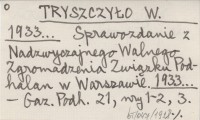 TRYSZCZYŁO W.
1933... Sprawozdanie z
Nadzwyczajnego Walnego
Zgromadzenia Związku Pod-
halan w Warszawie. 1933...
— Gaz. Podh. 21, nry 1-2, 3.